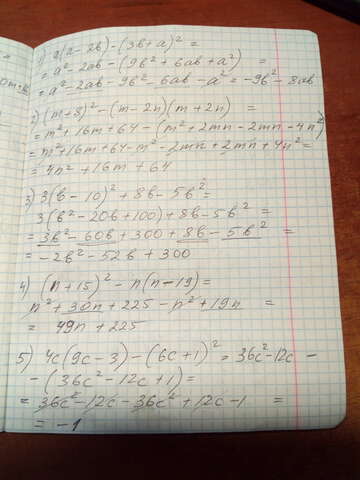 1) a(a - 2b) - (3b + a)² =
= a² - 2ab - (9b² + 6ab + a²) =
= a² - 2ab - 9b² - 6ab - a² = -9b² - 8ab
2) (m + 8)² - (m - 2n)(m + 2n) =
= m² + 16m + 64 - (m² + 2mn - 2mn - 4n²)
= m² + 16m + 64 - m² - 2mn + 2mn + 4n² =
= 4n² + 16m + 64
3) 3(b - 10)² + 8b - 5b² =
3(b² - 20b + 100) + 8b - 5b² =
= 3b² - 60b + 300 + 8b - 5b² =
= -2b² - 52b + 300
4) (n + 15)² - n(n - 19) =
n² + 30n + 225 - n² + 19n =
= 49n + 225
5) 4c(9c - 3) - (6c + 1)² = 36c² - 12c -
- (36c² - 12c + 1) =
= 36c² - 12c - 36c² + 12c - 1 =
= -1